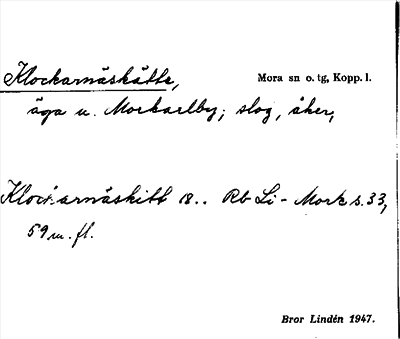 Klockarnäskätte, Mora sn o. tg, Kopp. l.
äga u. Morkarlby; slog, åker,
Klockarnäskitt 18.. Rb Li - Mork s. 33,
59 m. fl.
Bror Lindén 1947.